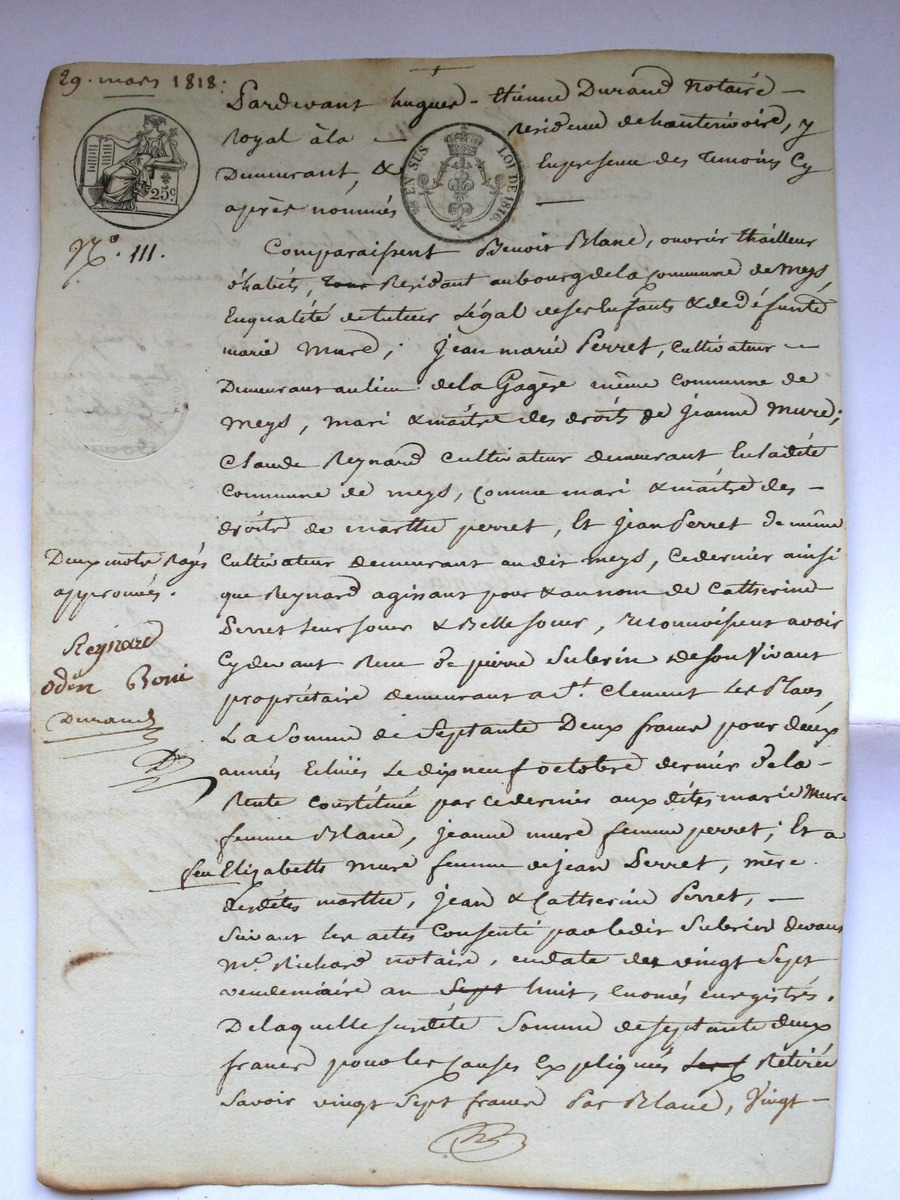 29. mars 1818.
Pardevant hugues-Etienne Durand Notaire
Royal à la résidence de hauterivoire, y
Demeurant, & En presence des Temoins Cy
après nommés
25c.
25 EN SUS LOI DE 1816.
N.° 111.
Comparaissent Benoit Blanc, ouvrier thailleur
d'habits, Residant au bourg de la Commune de Meys,
En qualité de tuteur Légal de ses Enfants & de défunte
marie Mure; Jean marie Perret, Cultivateur
Demeurant au lieu de la Gagère même Commune de
Meys, mari & maitre des droits de Jeanne Mure;
Claude Reynard Cultivateur demeurant En la dite
Commune de Meys, Comme mari & maitre des
droits de marthe perret, Et Jean Perret de même
Cultivateur demeurant au dit Meys, Ce dernier ainsi
que Reynard agissant pour & au nom de Catherine
Perret leur soeur & Belle soeur, reconnoissent avoir
Cydevant Reçu de pierre Subrin de son Vivant
propriétaire demeurant a St. Clement Les Places,
La Somme de Septante Deux francs pour deux
années Echües Le dix neuf octobre dernier de la
Rente Constituée par ce dernier aux dites marie Mure
femme Blanc, Jeanne mure femme perret; Et a
feu Elizabeth Mure femme de Jean Perret, mère
desdites marthe, Jean & Catherine Perret,
Suivant les actes Consenti par ledit Subrin devant
Me. Richard notaire, en date des vingt Sept
vendemiaire an Sept huit, enregistrés.
De laquelle susdite Somme de Septante deux
francs pour les Causes Expliquées Retirée
Savoir vingt Sept francs Par Blanc, Vingt
Deux mots rayés
approuvés.
Reynard
odin
Durand